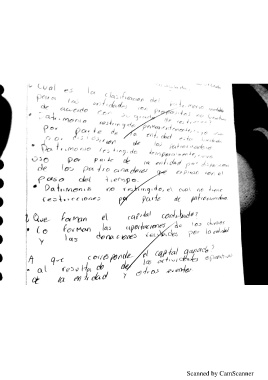 Cual es la clasificacion del patrimonio contable
para las entidades con propositos no lucrativos
de acuerdo con su grado de restriccion?
• Patrimonio restringido permanentemente, cuyo uso
por parte de la entidad esta limitado
por disposicion de los patrocinadores
• Patrimonio restringido temporalmente, cuyo
uso por parte de la entidad por disposicion
de los patrocinadores que expiran con el
paso del tiempo
• Patrimonio no restringido, el cual no tiene
restricciones por parte de patrocinadores
¿Que forman el capital contribuido?
• Lo forman las aportaciones de los dueños
y las donaciones recibidas por la entidad
A que corresponde el capital ganado?
• al resultado de las actividades operativas
de la entidad y otros eventos
Scanned by CamScanner